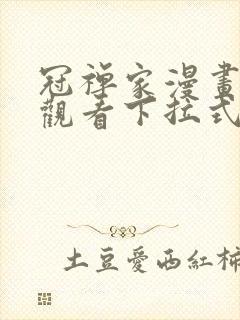 冠禅家漫畫
觀看下拉式
土豆愛西紅柿